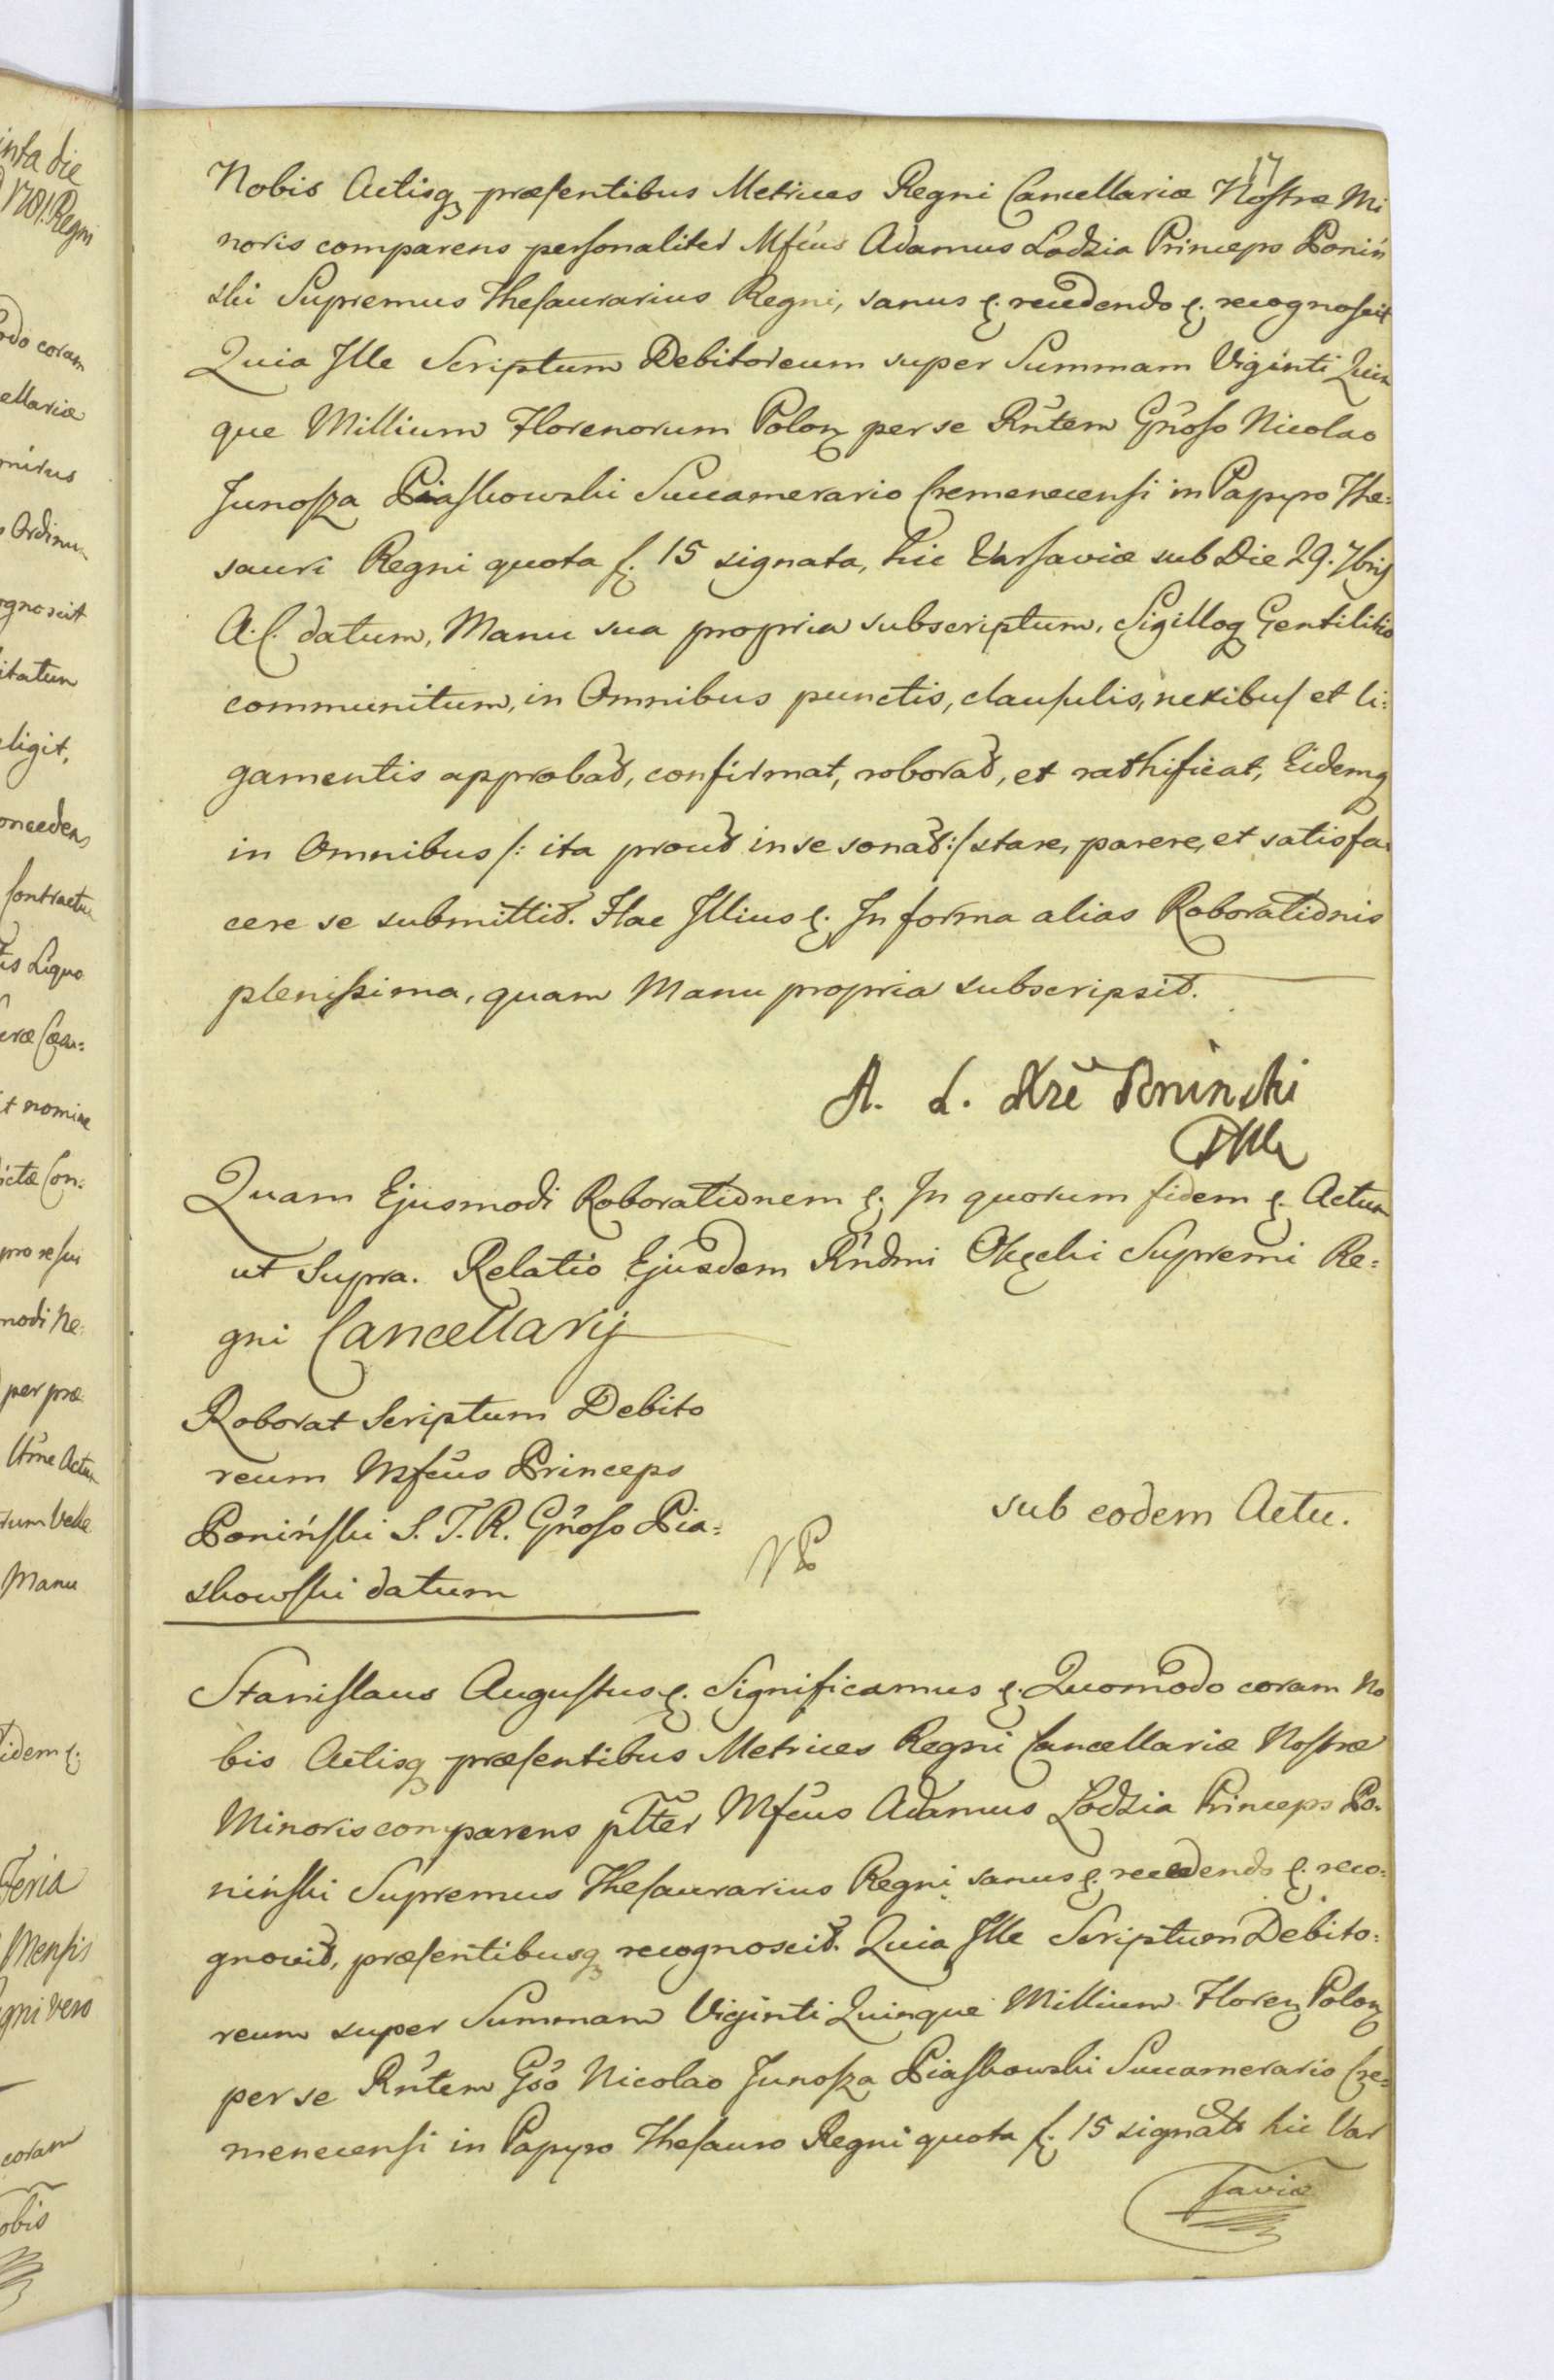 17
Nobis Actisq præsentibus Metrices Regni Cancellariæ Nostræ Mi
noris comparens personaliter Mfcus Adamus Lodzia Princeps Poniń
ski Supremus Thesaurarius Regni, sanus &. recedendo &. recognoscit
Quia Ille Scriptum Debitoreum super Summam Viginti Quin
que Millium Florenorum Polon per se Rntem Gnoso Nicolao
Junosza Piaskowski Succamerario Cremenecensi in Papyro The=
sauri Regni quota f. 15 signata, hic Varsaviæ sub Die 29. 7bris
A. C. datum, Manu sua propria subscriptum, Sigilloq Gentilitio
communitum, in Omnibus punctis, clausulis, nexibus et li=
gamentis approbat, confirmat, roborat, et rathificat, Eidemq
in Omnibus /: ita prout in se sonat :/ stare, parere, et satisfa
cere se submittit. Hac Illius &. In forma alias Roborationis
plenissima, quam Manu propria subscripsit.
A. L. Xże Poninski
Quam Ejusmodi Roborationem &. In quorum fidem &. Actum
ut Supra. Relatio Ejusdem Rndmi Okęcki Supremi Re=
gni Cancellarij
Roborat Scriptum Debito
reum Mfcus Princeps
Poniński S. T. R. Gnoso Pia=
skowski datum
sub eodem Actu.
Stanislaus Augustus &. Significamus &. Quomodo coram No
bis Actisq præsentibus Metrices Regni Cancellariæ Nostræ
Minoris comparens plter Mfcus Adamus Lodzia Princeps Po=
niński Supremus Thesaurarius Regni sanus &. recedendo &. reco=
gnovit, præsentibusq recognoscit. Quia Ille Scriptum Debito=
reum super Summam Viginti Quinque Millium Floren Polon
per se Rntem Gso Nicolao Junosza Piaskowski Succamerario Cre=
menecensi in Papyro Thesauro Regni quota f. 15 signata hic Var
saviæ